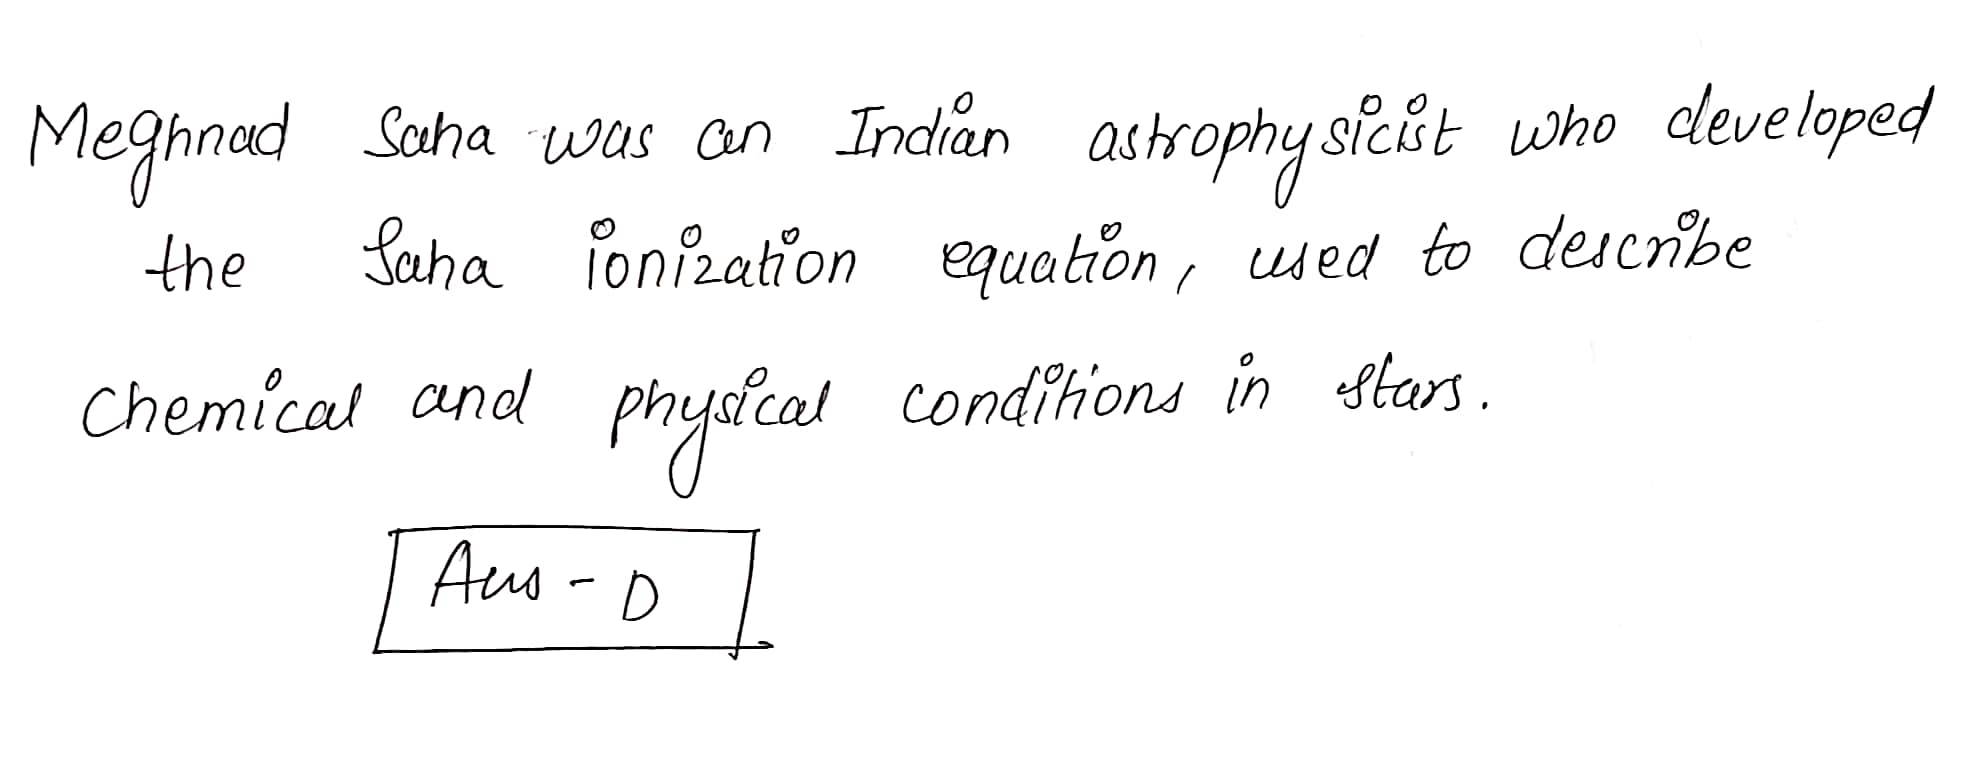 Meghnad Saha was an Indian astrophysicist who developed
the Saha ionization equation, used to describe
chemical and physical conditions in stars.
Ans - D